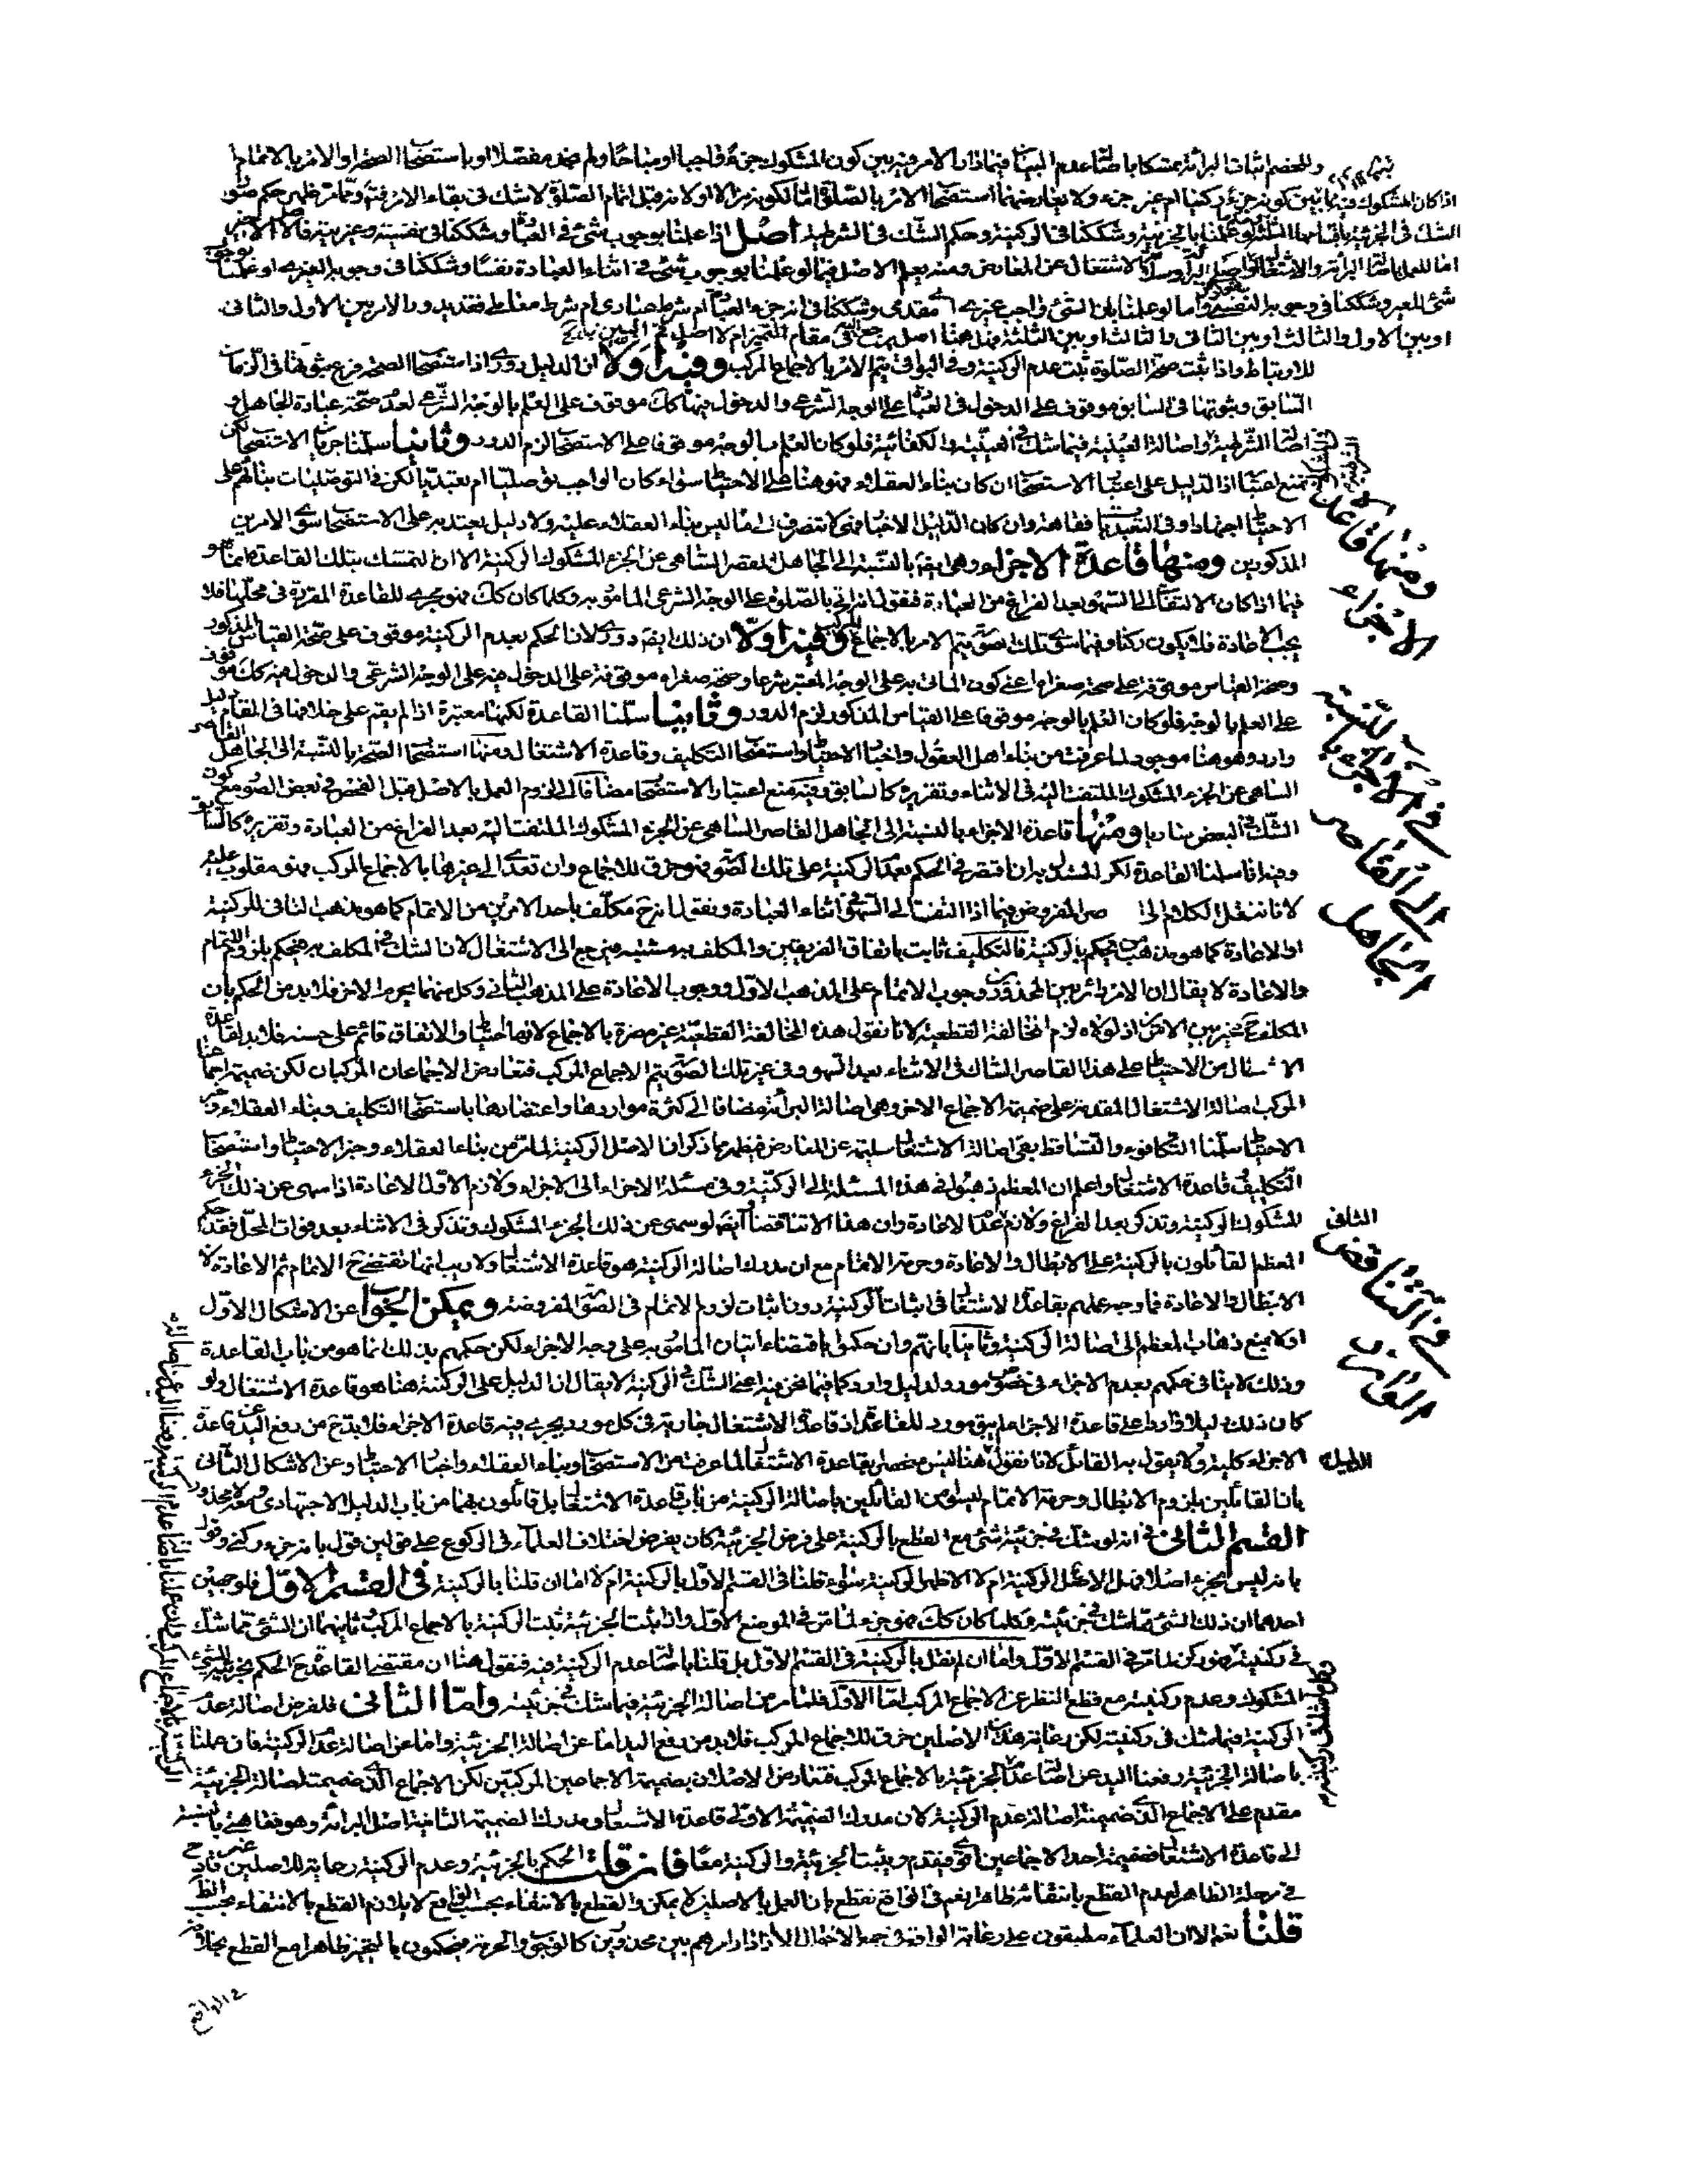 وللخصم اثبات البرائة متمسكا باصالة عدم البيان فيما دار الامر فيه بين كون المشكوك جزءا واجبا او مباحا ولم ضد مفصلا او باستصحاب الصحة او الامر بالاتمام
اذا كان المشكوك فيه ما بين كونه جزء ركنيا ام غير جزء ولا يعارضهما استصحاب الامر بالصلوة
الشك في الجزئية وشككنا في الركنية وحكم الشك في الشرطية اصل اذا علمنا بوجوب شئ في العبادة وشككنا في نفسيته وغيريته
الاشتغال عن المعارض ومنه يعلم الاصل فيما لو علمنا بوجوب شئ في اثناء العبادة نفسا وشككنا في وجوبه الغيري او علمنا
شئ للغير وشككنا في وجوبه النفسي واما لو علمنا بان الشئ واجب غيري مقدمي وشككنا في انه جزء العبادة ام شرط عبادي ام شرط معاملي فقد يدور الامر بين الاول والثاني
او بين الاول والثالث او بين الثاني والثالث او بين الثلثة فهل هنا اصل يرجع اليه في مقام التميز ام لا
للارتباط واذا ثبت صحة الصلوة ثبت عدم الركنية وفي البواقي يتم الامر بالاجماع المركب وفيه اولا ان الدليل دوري اذ استصحاب الصحة فرع ثبوتها في الزمان
السابق وثبوتها في السابق موقوف على الدخول في العبادة على الوجه الشرعي والدخول فيها كك موقوف على العلم بالوجه الشرعي لعدم صحة عبادة الجاهل
اصالة الشرطية واصالة العينية فيما شك في العينية والكفائية فلو كان العلم بالوجه موقوفا على الاستصحاب لزم الدور وثانيا سلمنا جريان الاستصحاب لكن
نمنع اعتباره اذ الدليل على اعتبار الاستصحاب ان كان بناء العقلاء فهو هنا على الاحتياط سواء كان الواجب توصليا ام تعبديا لكن في التوصليات بنائهم على
الاحتياط اجتهادا وفي التعبديات فقاهة وان كان الدليل الاخبار فهي لا تنصرف الى ما ليس بناء العقلاء عليه ولا دليل يعتد به على الاستصحاب سوى الامرين
المذكورين ومنها قاعدة الاجزاء وهي ايضا بالنسبة الى الجاهل المقصر الساهي عن الجزء المشكوك الركنية الا ان التمسك بتلك القاعدة هنا هو
فيما اذا كان الالتفات الى السهو بعد الفراغ من العبادة فنقول انه اتى بالصلوة على الوجه الشرعي المامور به وكلما كان كك فهو مجز للقاعدة المقررة في محلها فلا
يجب الاعادة فلا يكون ركنا وفيما سوى تلك الصورة يتم الامر بالاجماع المركب وفيه اولا ان ذلك ايضا دوري لان الحكم بعدم الركنية موقوف على صحة القياس المذكور
وصحة القياس موقوفة على صحة صغراه اعني كون الماتي به على الوجه المعتبر شرعا وصحة صغراه موقوفة على الدخول فيه على الوجه الشرعي والدخول فيه كك موقوف
على العلم بالوجه فلو كان العلم بالوجه موقوفا على القياس المذكور لزم الدور وثانيا سلمنا القاعدة لكنها معتبرة اذا لم يقم على خلافها في المقام دليل
وارد وهو هنا موجود لما عرفت من بناء اهل العقول واخبار الاحتياط واستصحاب التكليف وقاعدة الاشتغال ومنها استصحاب الصحة بالنسبة الى الجاهل القاصر
الساهي عن الجزء المشكوك الملتفت اليه في الاثناء وتقريره كالسابق وفيه منع اعتبار الاستصحاب مضافا الى لزوم العمل بالاصل قبل الفحص في بعض الصور مع كون
الشك في البعض بناديا ومنها قاعدة الاجزاء بالنسبة الى الجاهل القاصر الساهي عن الجزء المشكوك الملتفت اليه بعد الفراغ من العبادة وتقريره كالسابق
وفيه انا سلمنا القاعدة لكن المستدل به ان اقتصر في الحكم بعدم الركنية على تلك الصورة فهو خرق للاجماع وان تعدى الى غيرها بالاجماع المركب فهو مقلوب عليه
لانا ننقل الكلام الى المفروض فيما اذا التفت الى السهو في اثناء العبادة ونقول انه ح مكلف باحد الامرين من الاتمام كما هو مذهب النافي للركنية
او الاعادة كما هو مذهب من يحكم بالركنية فالتكليف ثابت باتفاق الفريقين والمكلف به مشتبه فيرجع الى الاشتغال لان الشك في المكلف به فيحكم بلزوم الاتمام
والاعادة لا يقال ان الامر دائر بين المحذورين وجوب الاتمام على المذهب الاول ووجوب الاعادة على المذهب الثاني وكل منهما يحرم الاخر فلا بد من الحكم بان
المكلف ح مخير بين الامرين اذ لولاه لزم المخالفة القطعية لانا نقول هذه المخالفة القطعية غير مضرة بالاجماع لانها احتياط والاتفاق قائم على حسنه فلا بد لقاعدة
الاشتغال من الاحتياط على هذا القاصر الشاك في الاثناء بعد السهو وفي غير تلك الصورة يتم الاجماع المركب فتعارض الاجماعان المركبان لكن ضميمة اجماعنا
المركب اصالة الاشتغال المقدمة على ضميمة الاجماع الاخر وهي اصالة البرائة مضافا الى كثرة مواردها واعتضادها باستصحاب التكليف وبناء العقلاء وخبر
الاحتياط سلمنا التكافوء والتساقط بقي اصالة الاشتغال سليمة عن المعارض فظهر مما ذكر ان الاصل الركنية لما مر من بناء العقلاء وخبر الاحتياط واستصحاب
التكليف وقاعدة الاشتغال واعلم ان المعظم ذهبوا في هذه المسئلة الى الركنية وفي مسئلة الاجزاء الى الاجزاء ولازم الاول الاعادة اذا سهى عن ذلك الجزء
المشكوك الركنية وتذكر بعد الفراغ ولازم عدم الاعادة وان هذا الا تناقض ايضا لو سهى عن ذلك الجزء المشكوك وتذكر في الاثناء بعد فوات المحل فقد حكم
المعظم القائلون بالركنية على الابطال والاعادة وحرمة الاتمام مع ان مدرك اصالة الركنية هو قاعدة الاشتغال ولا ريب انها تقتضي ح الاتمام ثم الاعادة لا
الابطال والاعادة فما وجه عملهم بقاعدة الاشتغال في اثبات الركنية دون اثبات لزوم الاتمام في الصورة المفروضة ويمكن الجواب عن الاشكال الاول
اولا بمنع ذهاب المعظم الى اصالة الركنية وثانيا بانهم وان حكموا باقتضاء اتيان المامور به على وجه الاجزاء لكن حكمهم بذلك انما هو من باب القاعدة
وذلك لا ينافي حكمهم بعدم الاجزاء في خصوص مورد لدليل وارد كما فيما نحن فيه اعني الشك في الركنية لا يقال ان الدليل على الركنية هنا هو قاعدة الاشتغال ولو
كان ذلك دليلا واردا على قاعدة الاجزاء لم يبق مورد للقاعدة اذ قاعدة الاشتغال جارية في كل مورد يجري فيه قاعدة الاجزاء فلا بد ح من رفع اليد عن قاعدة
الاجزاء كلية ولا يقول به القائل لانا نقول الدليل هنا ليس منحصرا بقاعدة الاشتغال لما عرفت من الاستصحاب وبناء العقلاء واخبار الاحتياط وعن الاشكال الثاني
بان القائلين بلزوم الابطال وحرمة الاتمام ليسوا من القائلين باصالة الركنية من باب قاعدة الاشتغال بل قائلون بها من باب الدليل الاجتهادي ولا محذور
القسم الثاني في انه لو شك في جزئية شئ مع القطع بالركنية على فرض الجزئية كان يفرض اختلاف العلماء في الركوع على قولين قول بانه جزء ركني وقول
بانه ليس بجزء اصلا فهل الاصل الركنية ام لا الاظهر الركنية سواء قلنا في القسم الاول بالركنية ام لا اما ان قلنا بالركنية في القسم الاول فلوجهين
احدهما ان ذلك الشئ مما شك في جزئيته وكلما كان كك فهو جزء لما مر في الموضع الاول واذا ثبت الجزئية ثبت الركنية بالاجماع المركب ثانيهما ان الشئ مما شك
في ركنيته فهو ركن لما مر في القسم الاول واما ان لم نقل بالركنية في القسم الاول بل قلنا باصالة عدم الركنية فيه فنقول هنا ان مقتضى القاعدة ح الحكم بجزئية الشئ
المشكوك وعدم ركنيته مع قطع النظر عن الاجماع المركب اما الاول فلما مر من اصالة الجزئية فيما شك في جزئيته واما الثاني فلفرض اصالة عدم
الركنية فيما شك في ركنيته لكن رعاية هذين الاصلين خرق للاجماع المركب فلا بد من رفع اليد اما عن اصالة الجزئية واما عن اصالة عدم الركنية فان عملنا
باصالة الجزئية رفعنا اليد عن اصالة عدم الركنية بالاجماع المركب فتعارض الاصلان بضميمة الاجماعين المركبين لكن الاجماع الذي ضميمته اصالة الجزئية
مقدم على الاجماع الذي ضميمته اصالة عدم الركنية لان مدرك الضميمة الاولى قاعدة الاشتغال ومدرك الضميمة الثانية اصل البرائة وهو فقاهي بالنسبة
الى قاعدة الاشتغال فضميمة احد الاجماعين اقوى فيقدم ويثبت الجزئية والركنية معا فان قلت الحكم بالجزئية وعدم الركنية رعاية للاصلين غير قادح
في مرحلة الظاهر لعدم القطع بانتفائه ظاهرا نعم في الواقع نقطع بان العمل بالاصلين لا يمكن والقطع بالانتفاء بحسب الواقع لا يلازم القطع بالانتفاء بحسب الظاهر
قلنا نعم الا ان العلماء مطبقون على رعاية الواقع في جميع الاحوال الا اذا دار امرهم بين محذورين كالوجوب والحرمة فيحكمون بالتخيير ظاهرا مع القطع بخلافه
في الواقع
ومنها قاعدة الاجزاء
في الاجزاء بالنسبة الى القاصر الجاهل
الثاني
في التناقض
الدليل